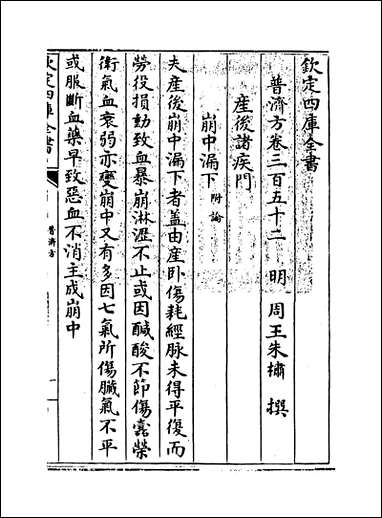 欽定四庫全書
普濟方卷三百五十二　明　周王朱橚　撰
產後諸疾門
崩中漏下附論
夫產後崩中漏下者蓋由產卧傷耗經脉未得平復而
勞役損動致血暴崩淋瀝不止或因鹹酸不節傷蠹榮
衛氣血衰弱亦變崩中又有多因七氣所傷臟氣不平
或服斷血藥早致惡血不消主成崩中
欽定四庫全書
普濟方
一